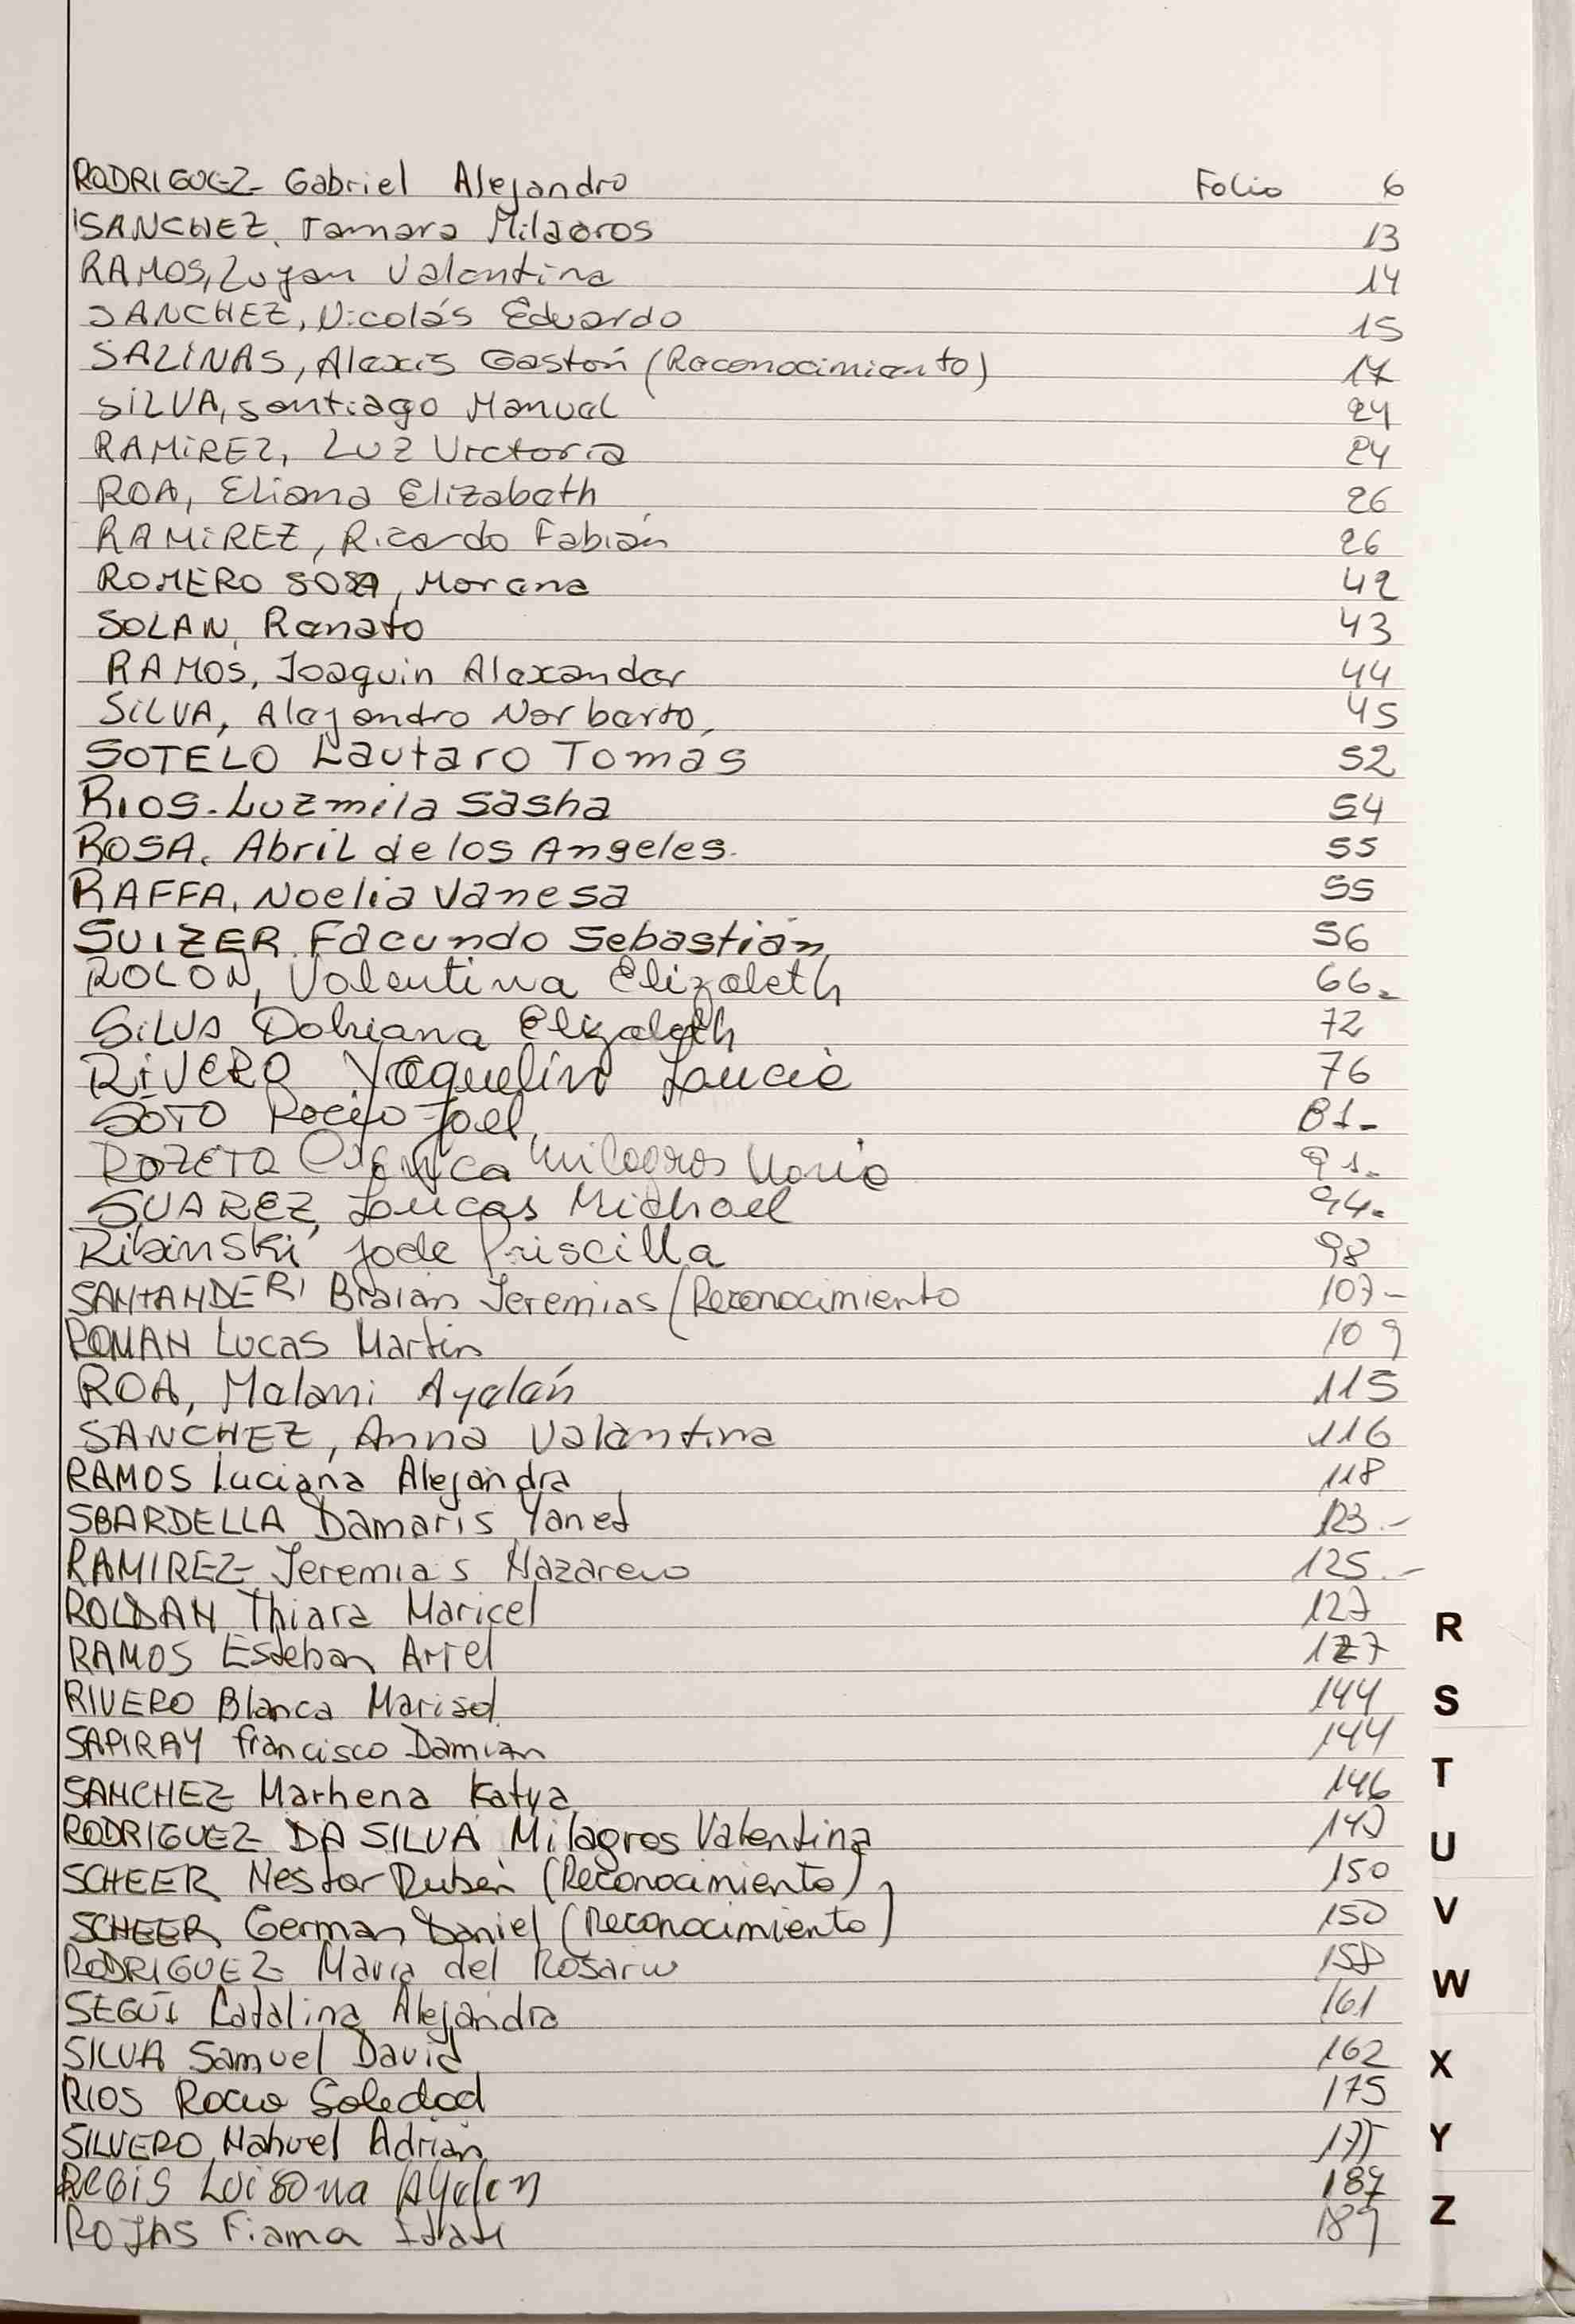 RODRIGUEZ Gabriel Alejandro Folio 6
SANCHEZ, Tamara Milagros 13
RAMOS, Lujan Valentina 14
SANCHEZ, Nicolás Eduardo 15
SALINAS, Alexis Gastón (Reconocimiento) 17
SILVA, Santiago Manuel 24
RAMIREZ, Luz Victoria 24
ROA, Eliana Elizabeth 26
RAMIREZ, Ricardo Fabián 26
ROMERO SOSA, Morena 42
SOLAN, Renato 43
RAMOS, Joaquin Alexander 44
SILVA, Alejandro Norberto, 45
SOTELO Lautaro Tomas 52
RIOS. Luzmila Sasha 54
ROSA. Abril de los Angeles. 55
RAFFA, Noelia Vanesa 55
SUIZER Facundo Sebastián 56
ROLON, Valentina Elizabeth 66
SILVA Dahiana Elizabeth 72
RIVERO Yaquelin Lucia 76
SOTO Rocio Joel 81
Milagros 91
SUAREZ, Lucas Michael 94
Ribinski Jode Priscilla 98
SANTANDER Braian Jeremias (Reconocimiento 107
ROMAN Lucas Martin 109
ROA, Melani Ayelén 115
SANCHEZ, Anna Valentina 116
RAMOS Luciana Alejandra 118
SBARDELLA Damaris Yanet 123
RAMIREZ Jeremias Nazareno 125
ROLDAN Thiara Maricel 127
RAMOS Esteban Ariel 127
RIVERO Blanca Marisol 144
SAPIRAY francisco Damian 144
SANCHEZ Marhena Katya 146
RODRIGUEZ DA SILVA Milagros Valentina
SCHEER Nestor Ruben (Reconocimiento) 150
SCHEER German Daniel (Reconocimiento) 150
RODRIGUEZ Maria del Rosario 158
SEGUI Catalina Alejandra 161
SILVA Samuel David 162
RIOS Rocio Soledad 175
SILVERO Nahuel Adrian 175
REGIS Luisona Ayelen 187
ROJAS Fiama Itati 189
R
S
T
U
V
W
X
Y
Z